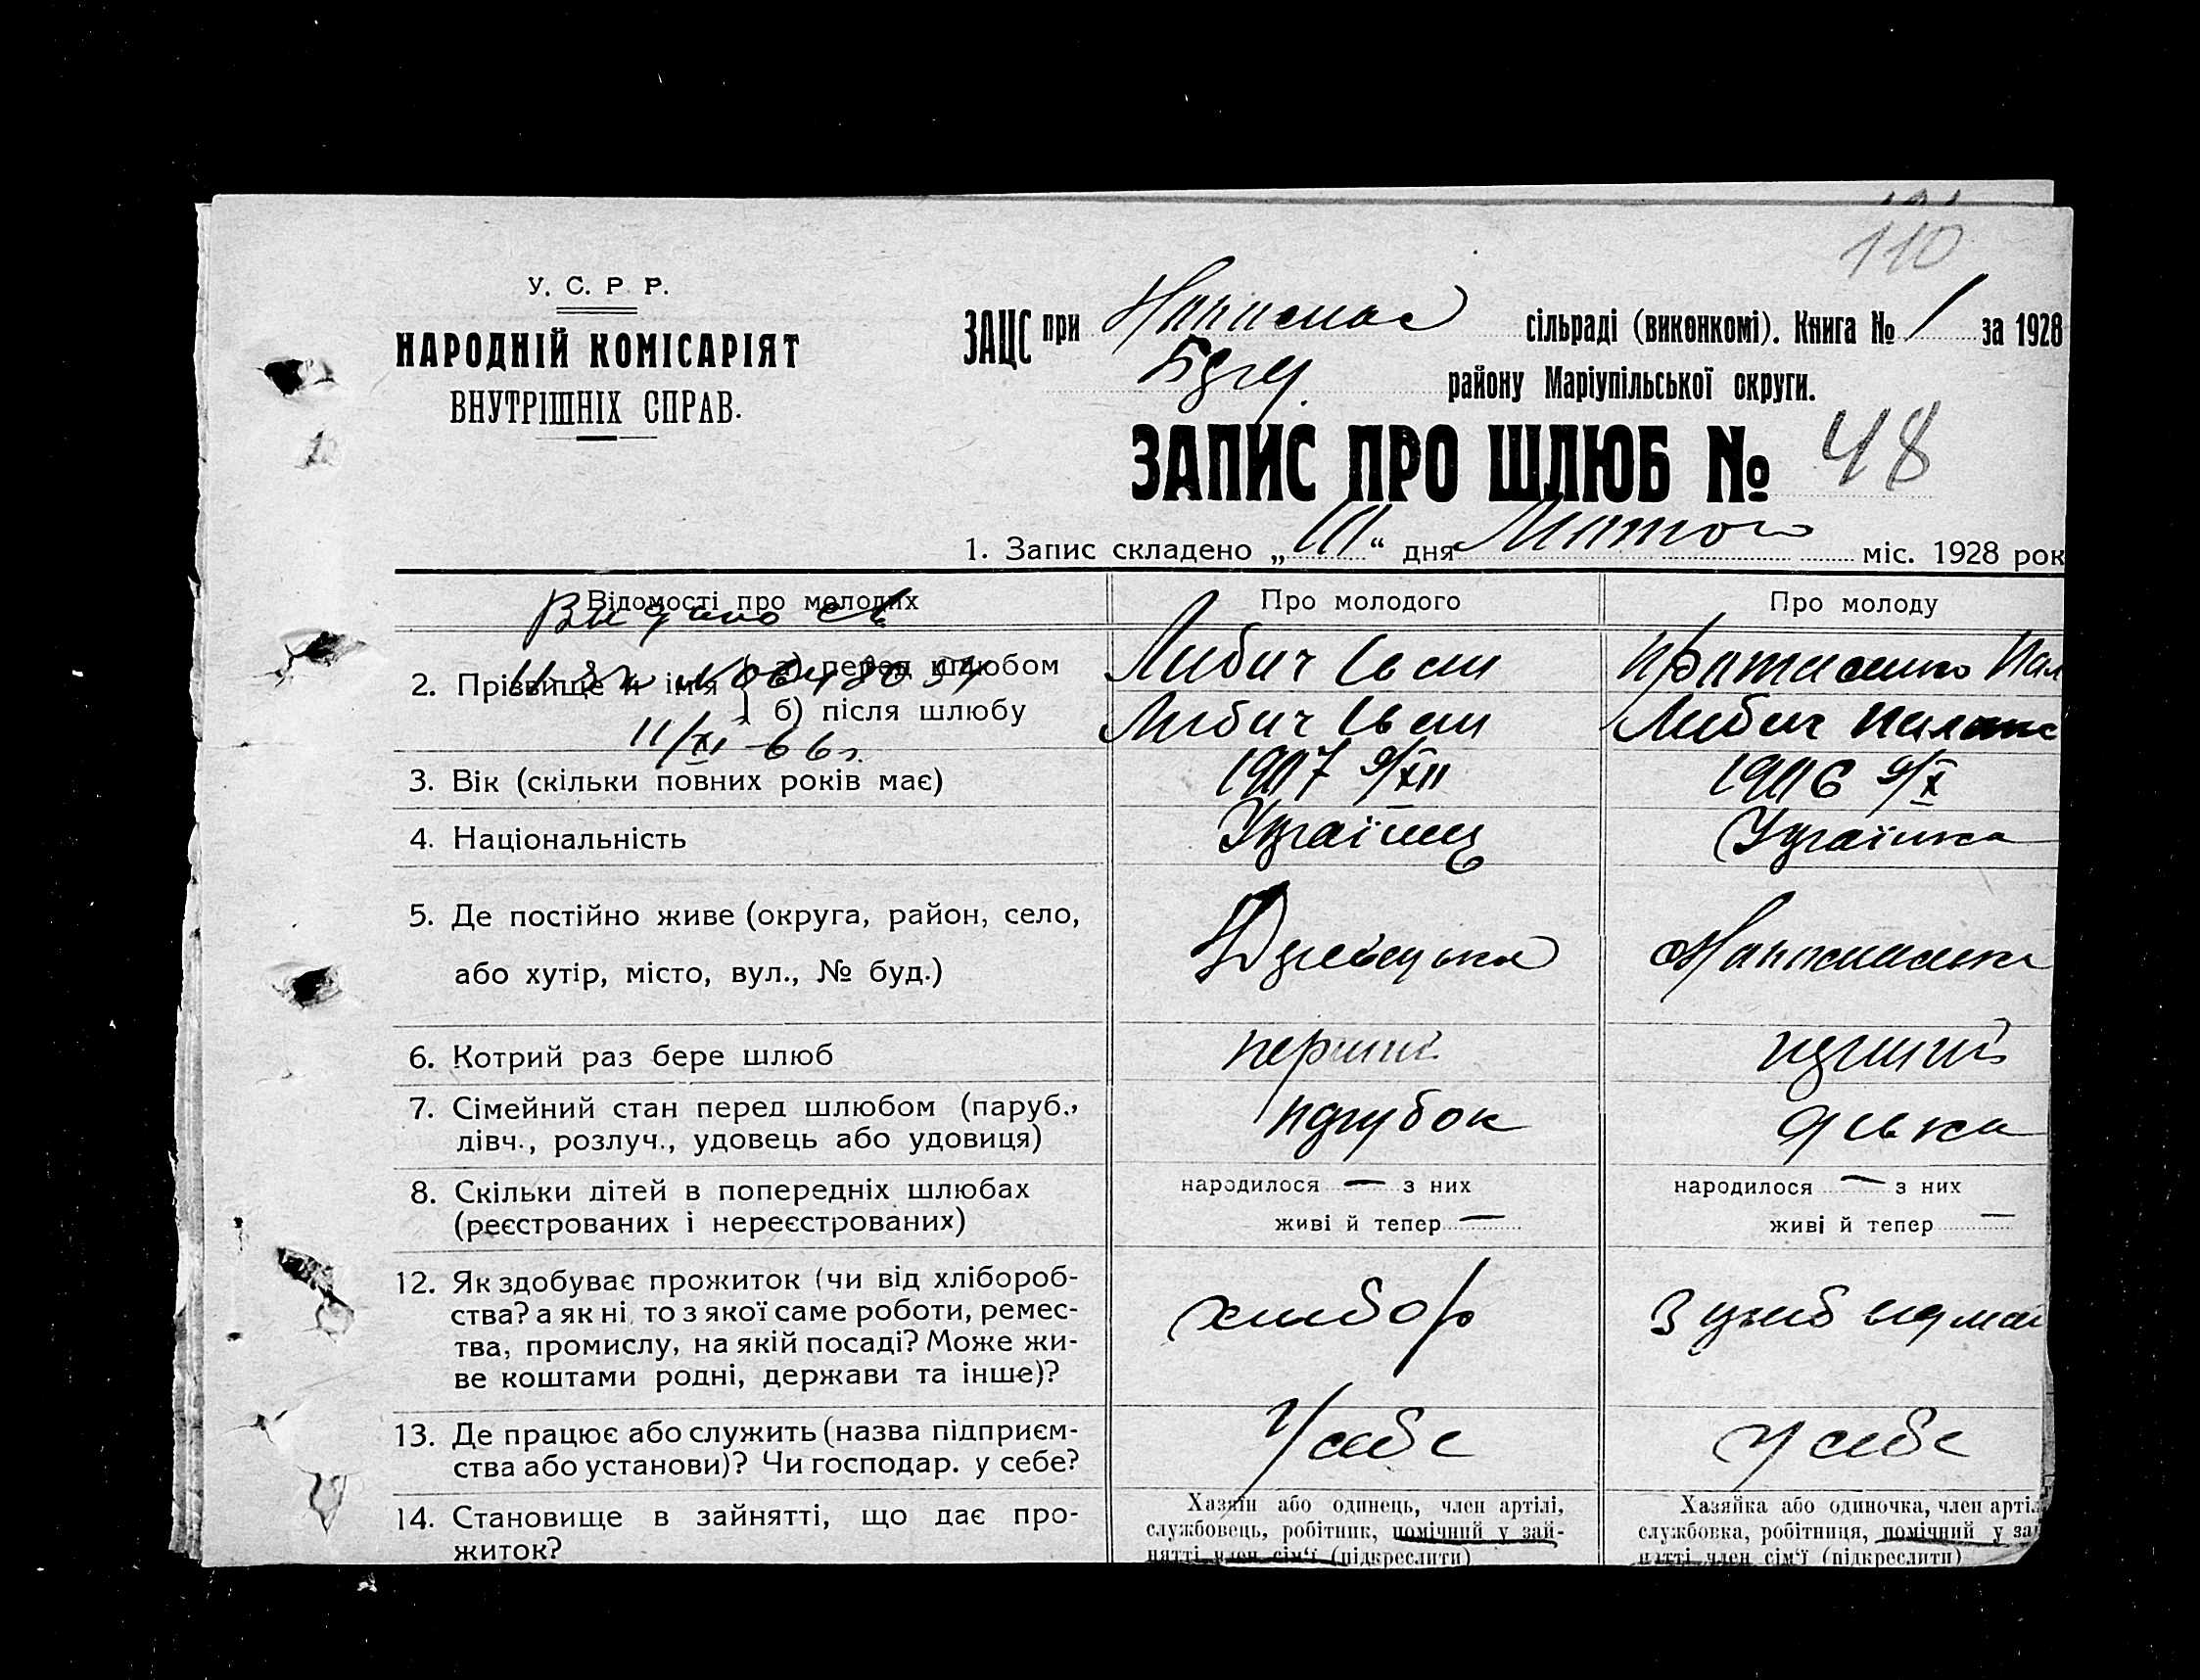 110
У. С. Р. Р.
НАРОДНІЙ КОМІСАРІЯТ
ВНУТРІШНІХ СПРАВ.
ЗАЦС при сільраді (виконкомі). Книга № 1 за 1928
району Маріупільської округи.
ЗАПИС ПРО ШЛЮБ № 48
1. Запис складено „ “ дня Лютого міс. 1928 рок
Відомості про молодих Про молодого Про молоду
2. Прізвище й імя а) перед шлюбом Либич Іван
б) після шлюбу Либич Іван Либич
11/XI-66г.
3. Вік (скільки повних років має) 1907 9/XII 1906 9/X
4. Національність Українець Українка
5. Де постійно живе (округа, район, село,
або хутір, місто, вул., № буд.)
6. Котрий раз бере шлюб перший перший
7. Сімейний стан перед шлюбом (паруб.,
дівч., розлуч., удовець або удовиця) парубок дівка
8. Скільки дітей в попередніх шлюбах народилося — з них народилося — з них
(реєстрованих і нереєстрованих) живі й тепер — живі й тепер —
12. Як здобуває прожиток (чи від хлібороб-
ства? а як ні, то з якої саме роботи, ремес- хлибор
тва, промислу, на якій посаді? Може жи-
ве коштами родні, держави та інше)?
13. Де працює або служить (назва підприєм- У себе У себе
ства або установи)? Чи господар. у себе?
14. Становище в зайнятті, що дає про-
житок?
Хазяїн або одинець, член артілі,
службовець, робітник, помічний у зай-
нятті член сім'ї (підкреслити)
Хазяйка або одиночка, член артіл
службовка, робітниця, помічний у за
нятті член сім'ї (підкреслити)